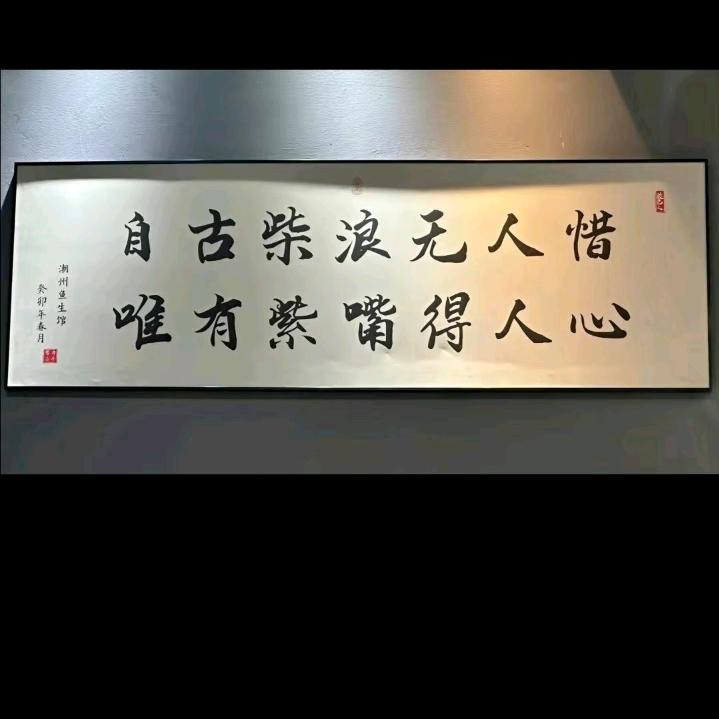 自古柴浪无人惜
唯有紫嘴得人心
潮州鱼生馆
癸卯年春月